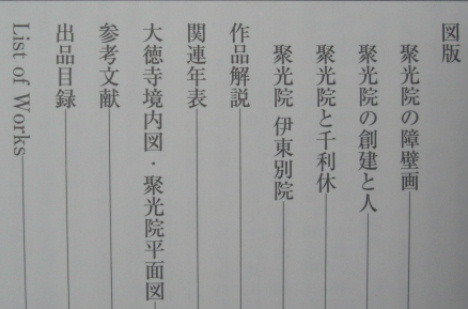 図版
聚光院の障壁画
聚光院の創建と人
聚光院と千利休
聚光院 伊東別院
作品解説
関連年表
大徳寺境内図・聚光院平面図
参考文献
出品目録
List of Works